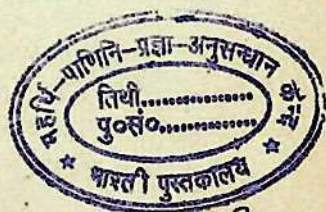 महर्षि-पाणिनि-प्रज्ञा-अनुसन्धान केन्द्र
तिथी..................
पु०सं०..................
★ भारती पुस्तकालय ★